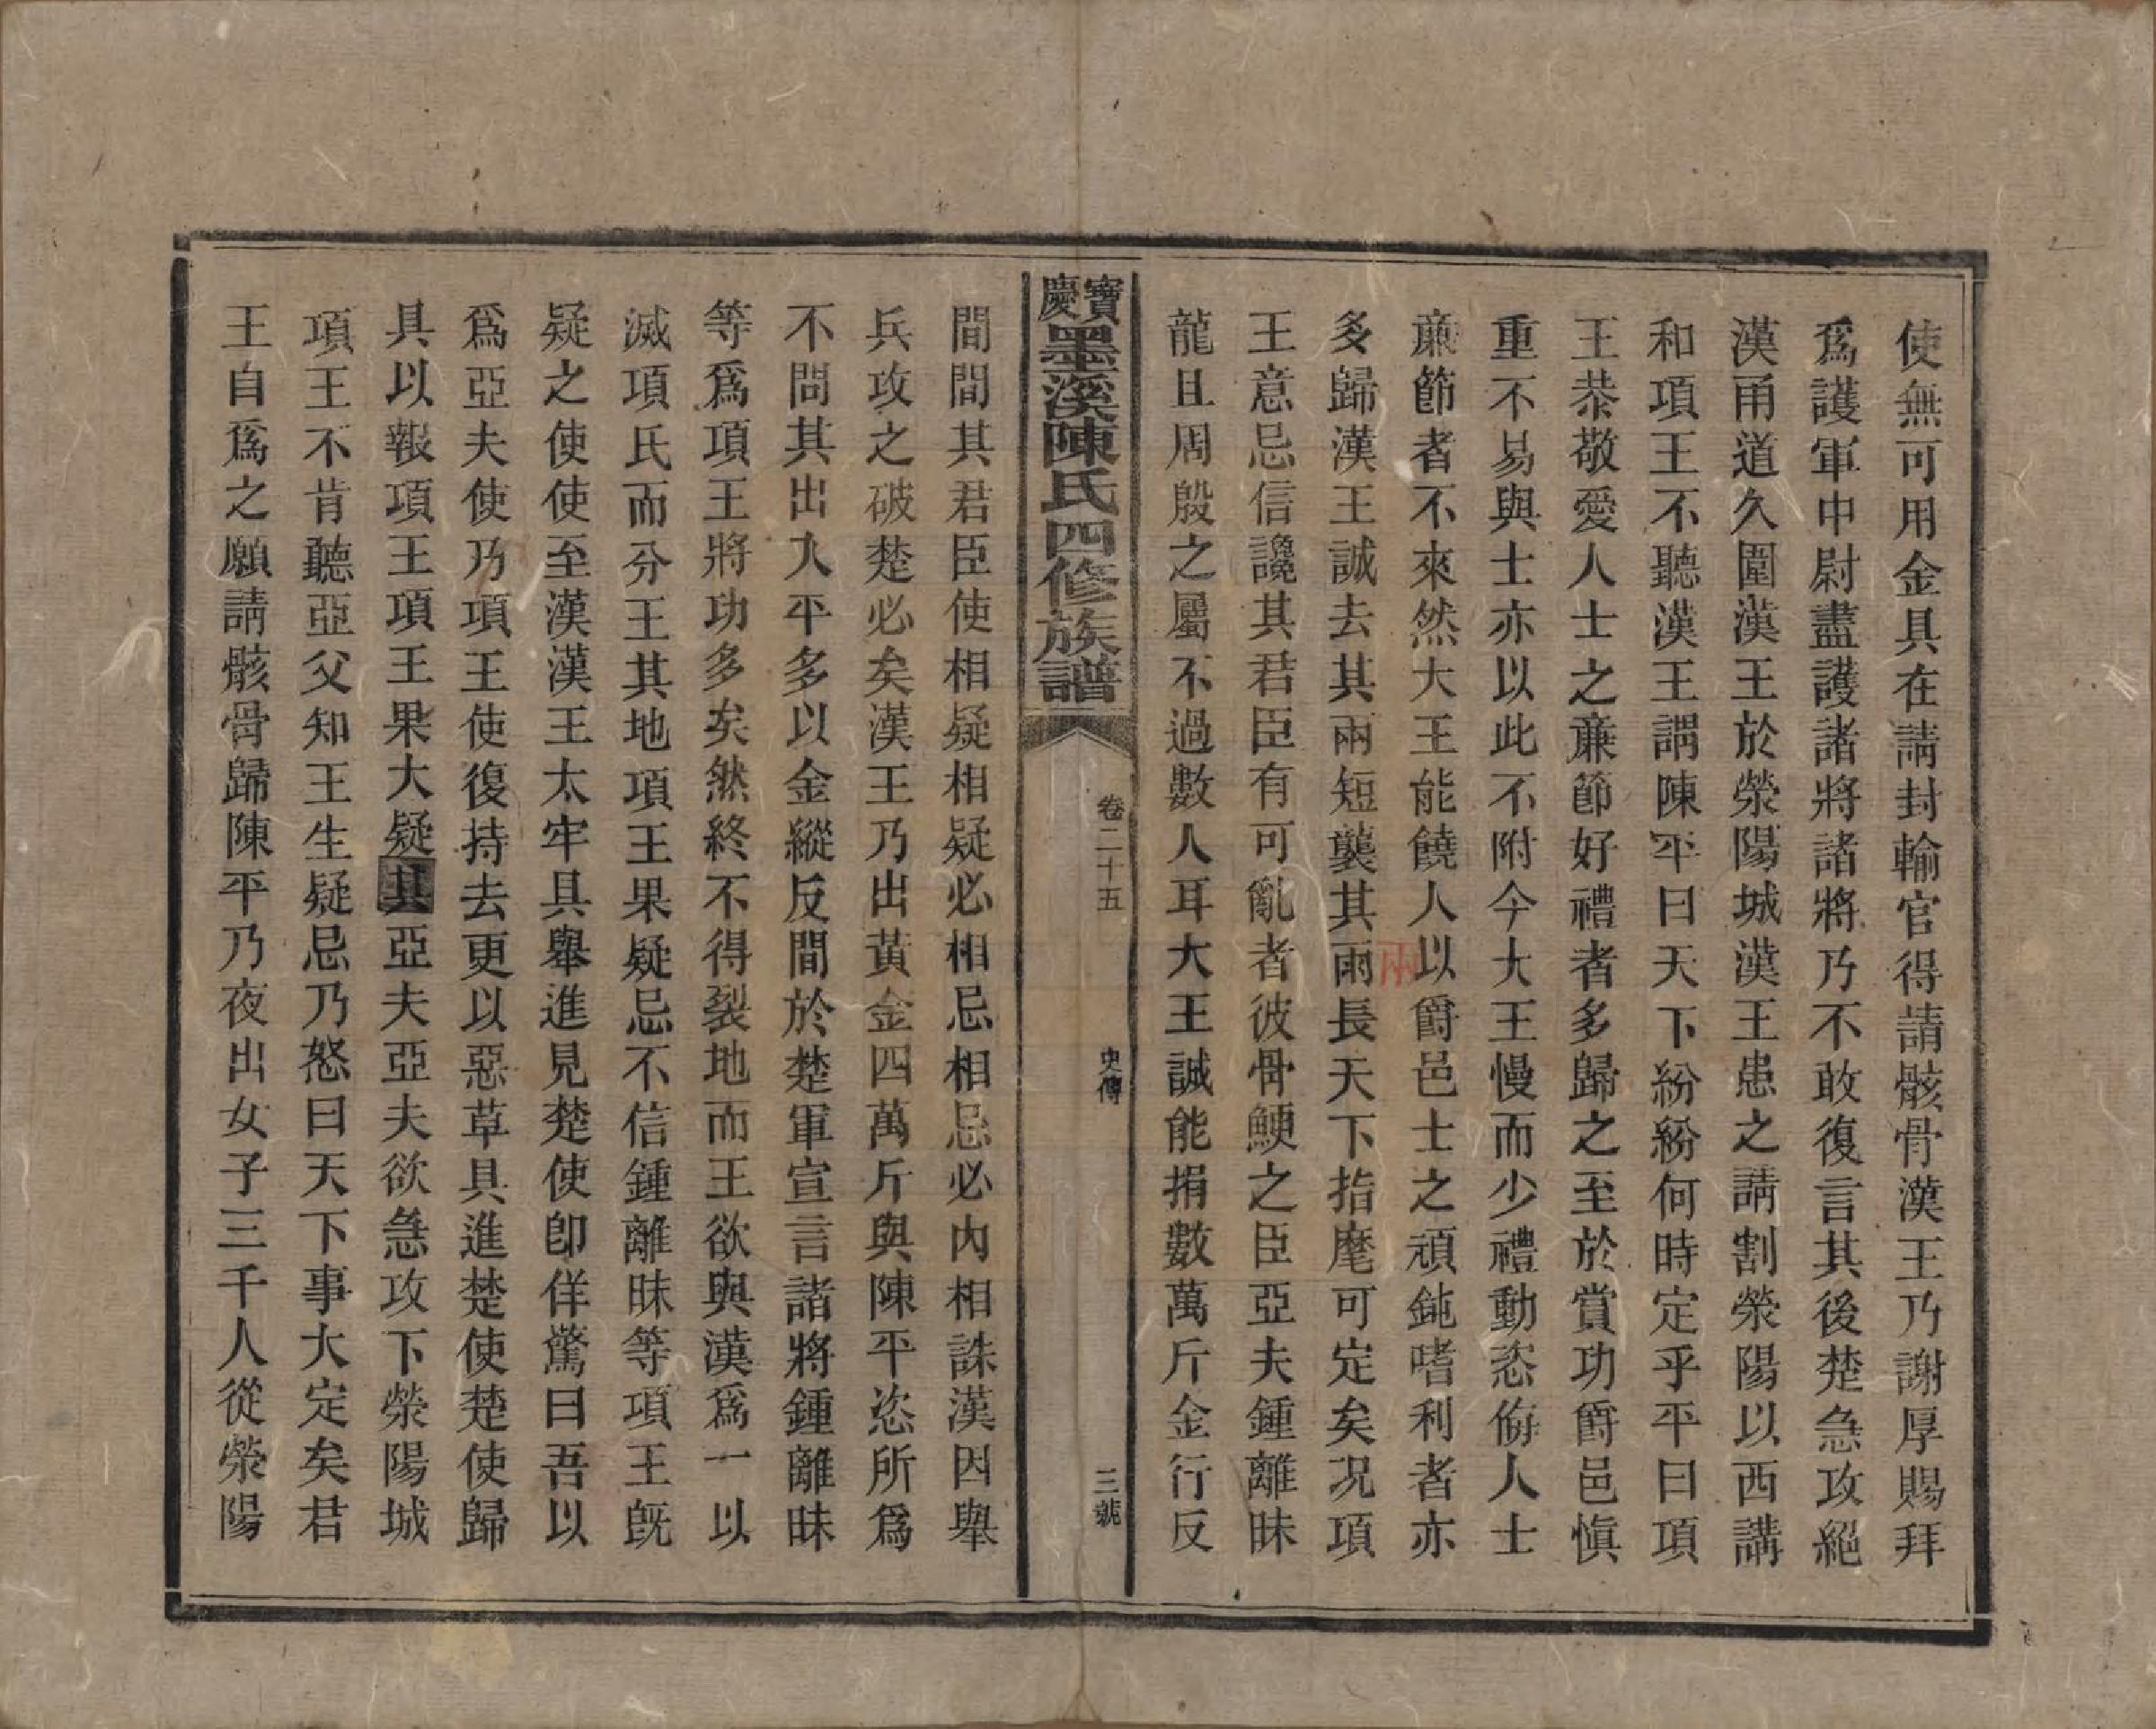 使無可用金具在請封輸官得請骸骨漢王乃謝厚賜拜
爲護軍中尉盡護諸將諸將乃不敢復言其後楚急攻絕
漢甬道久圍漢王於滎陽城漢王患之請割滎陽以西講
和項王不聽漢王謂陳平曰天下紛紛何時定乎平曰項
王恭敬愛人士之廉節好禮者多歸之至於賞功爵邑愼
重不易與士亦以此不附今大王慢而少禮動恣侮人士
廉節者不來然大王能饒人以爵邑士之頑鈍嗜利者亦
多歸漢王誠去其兩短襲其雨長天下指麾可定矣况項
兩
王意忌信讒其君臣有可亂者彼骨鯁之臣亞夫鍾離昧
龍且周殷之屬不過數人耳大王誠能捐數萬斤金行反
寶慶墨溪陳氏四修族譜
卷二十五
史傳
三號
間間其君臣使相疑相疑必相忌相忌必內相誅漢因舉
兵攻之破楚必矣漢王乃出黃金四萬斤與陳平恣所爲
不問其出入平多以金縱反間於楚軍宣言諸將鍾離昧
等爲項王將功多矣然終不得裂地而王欲與漢爲一以
滅項氏而分王其地項王果疑忌不信鍾離昧等項王旣
疑之使使至漢漢王太牢具舉進見楚使卽佯驚曰吾以
爲亞夫使乃項王使復持去更以惡草具進楚使楚使歸
具以報項王項王果大疑其亞夫亞夫欲急攻下滎陽城
項王不肯聽亞父知王生疑忌乃怒曰天下事大定矣君
王自爲之願請骸骨歸陳平乃夜出女子三千人從滎陽